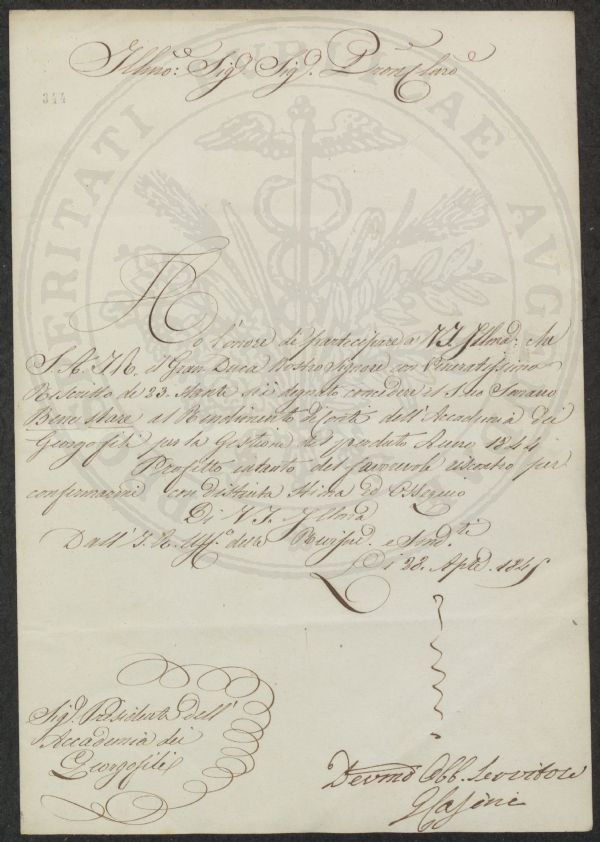 Illmo: Sig.e Sig.e Pron Claro
344
PROSPERITATI PUBLICAE AUGENDAE
Ho l'onore di partecipare a V.S. Illma: che
S.A.I.R. il Gran Duca Nostro Signore con Veneratissimo
Rescritto de' 23. Stante si è degnato concedere il Suo Sovrano
Bene stare al Rendimento di Conti dell'Accademia dei
Georgofili per la Gestione del perduto Anno 1844
Profitto intanto del favorevole riscontro per
confermarmi con distinta Stima ed Ossequio
Di V.S. Illma
Dall'I.R. Uff.o delle Revisi. e Sind.ti
Li 28. Aple 1845
Sig.e Presidente dell'
Accademia dei
Georgofili
Devmo Obb. Servitore